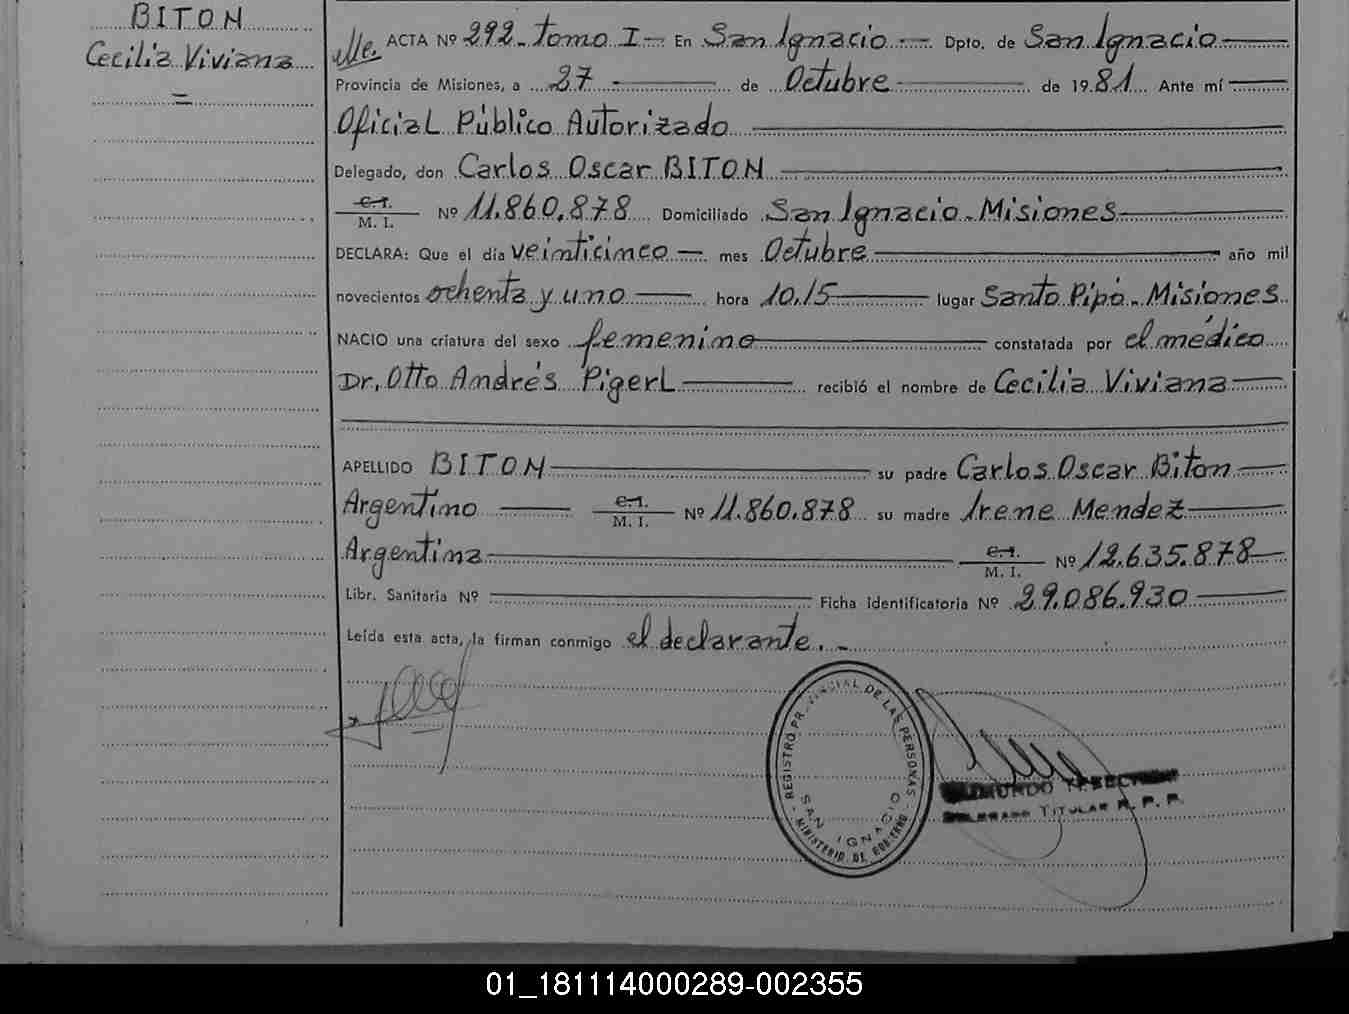 BITON
Cecilia Viviana
ACTA Nº 292 - tomo I - En San Ignacio - Dpto. de San Ignacio
Provincia de Misiones, a 27 - de Octubre de 1981 Ante mí
Oficial Público Autorizado
Delegado, don Carlos Oscar BITON
C.I.
M. I. Nº 11.860.878 Domiciliado San Ignacio - Misiones
DECLARA: Que el día veinticinco - mes Octubre año mil
novecientos ochenta y uno hora 10,15 lugar Santo Pipó - Misiones
NACIO una criatura del sexo femenino constatada por el médico
Dr. Otto Andrés Pigerl recibió el nombre de Cecilia Viviana
APELLIDO BITON su padre Carlos Oscar Biton
Argentino C.I. M. I. Nº 11.860.878 su madre Irene Mendez
Argentina C.I. M. I. Nº 12.635.878
Libr. Sanitaria Nº Ficha Identificatoria Nº 29.086.930
Leída esta acta, la firman conmigo el declarante. -
REGISTRO PROVINCIAL DE LAS PERSONAS - MINISTERIO DE GOBIERNO -
SAN IGNACIO
TITULAR R. P. P.
01_181114000289-002355